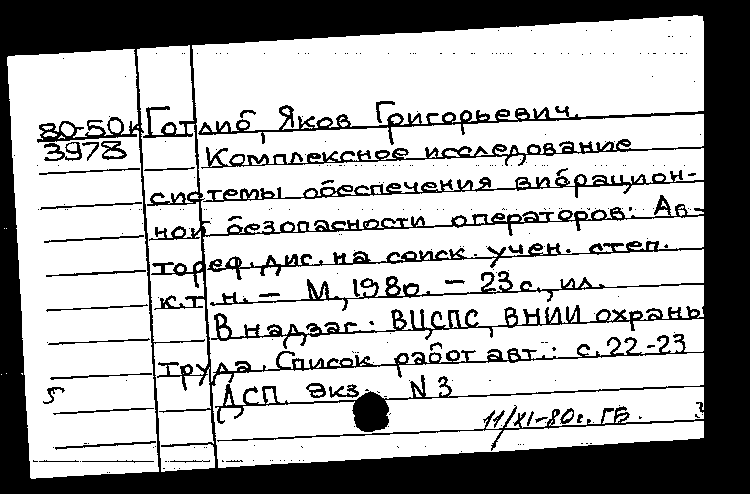 80-50к Готлиб, Яков Григорьевич.
3978 Комплексное исследование
системы обеспечения вибрацион-
ной безопасности операторов: Ав-
тореф. дис. на соиск. учен. степ.
к.т.н. – М., 1980. – 23 с., ил.
В надзаг.: ВЦСПС, ВНИИ охраны
труда. Список работ авт.: с. 22-23
5 ДСП. Экз. N 3
11/XI-80г. ГБ. 3